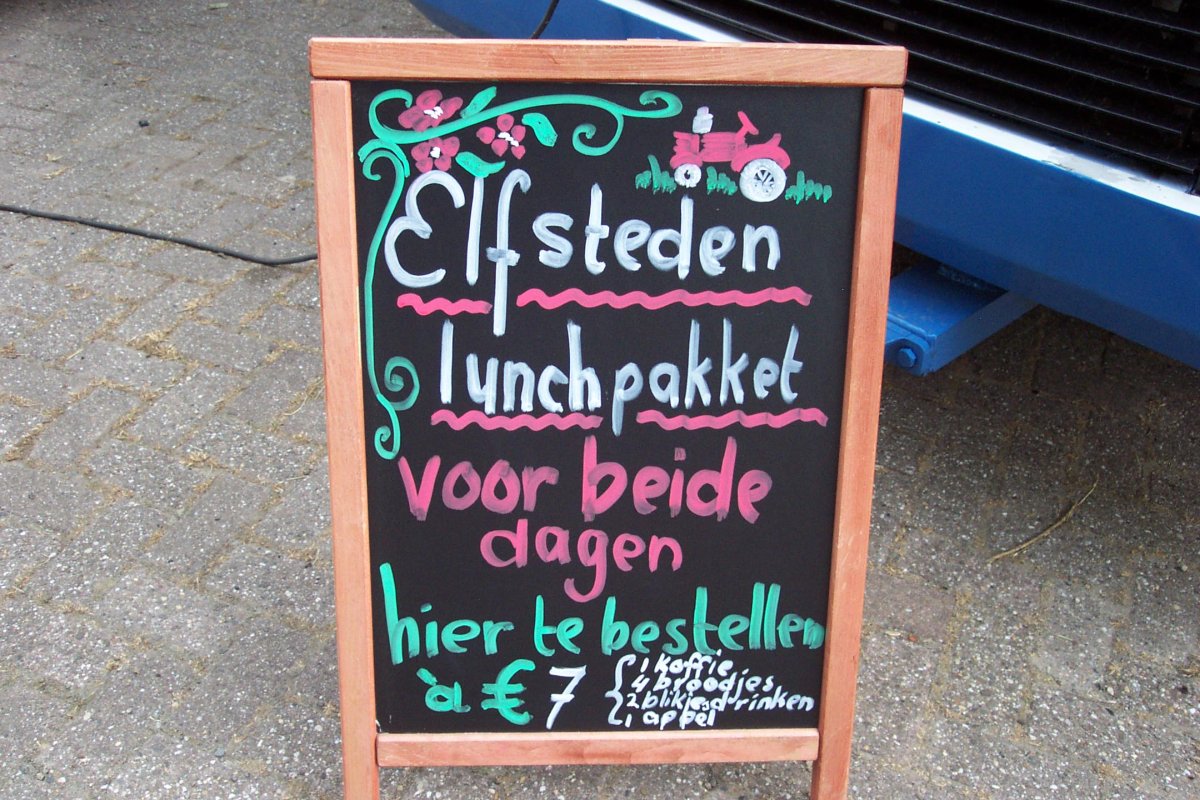 Elfsteden
lunchpakket
voor beide
dagen
hier te bestellen
à € 7
1 koffie
4 broodjes
2 blikjes drinken
1 appel